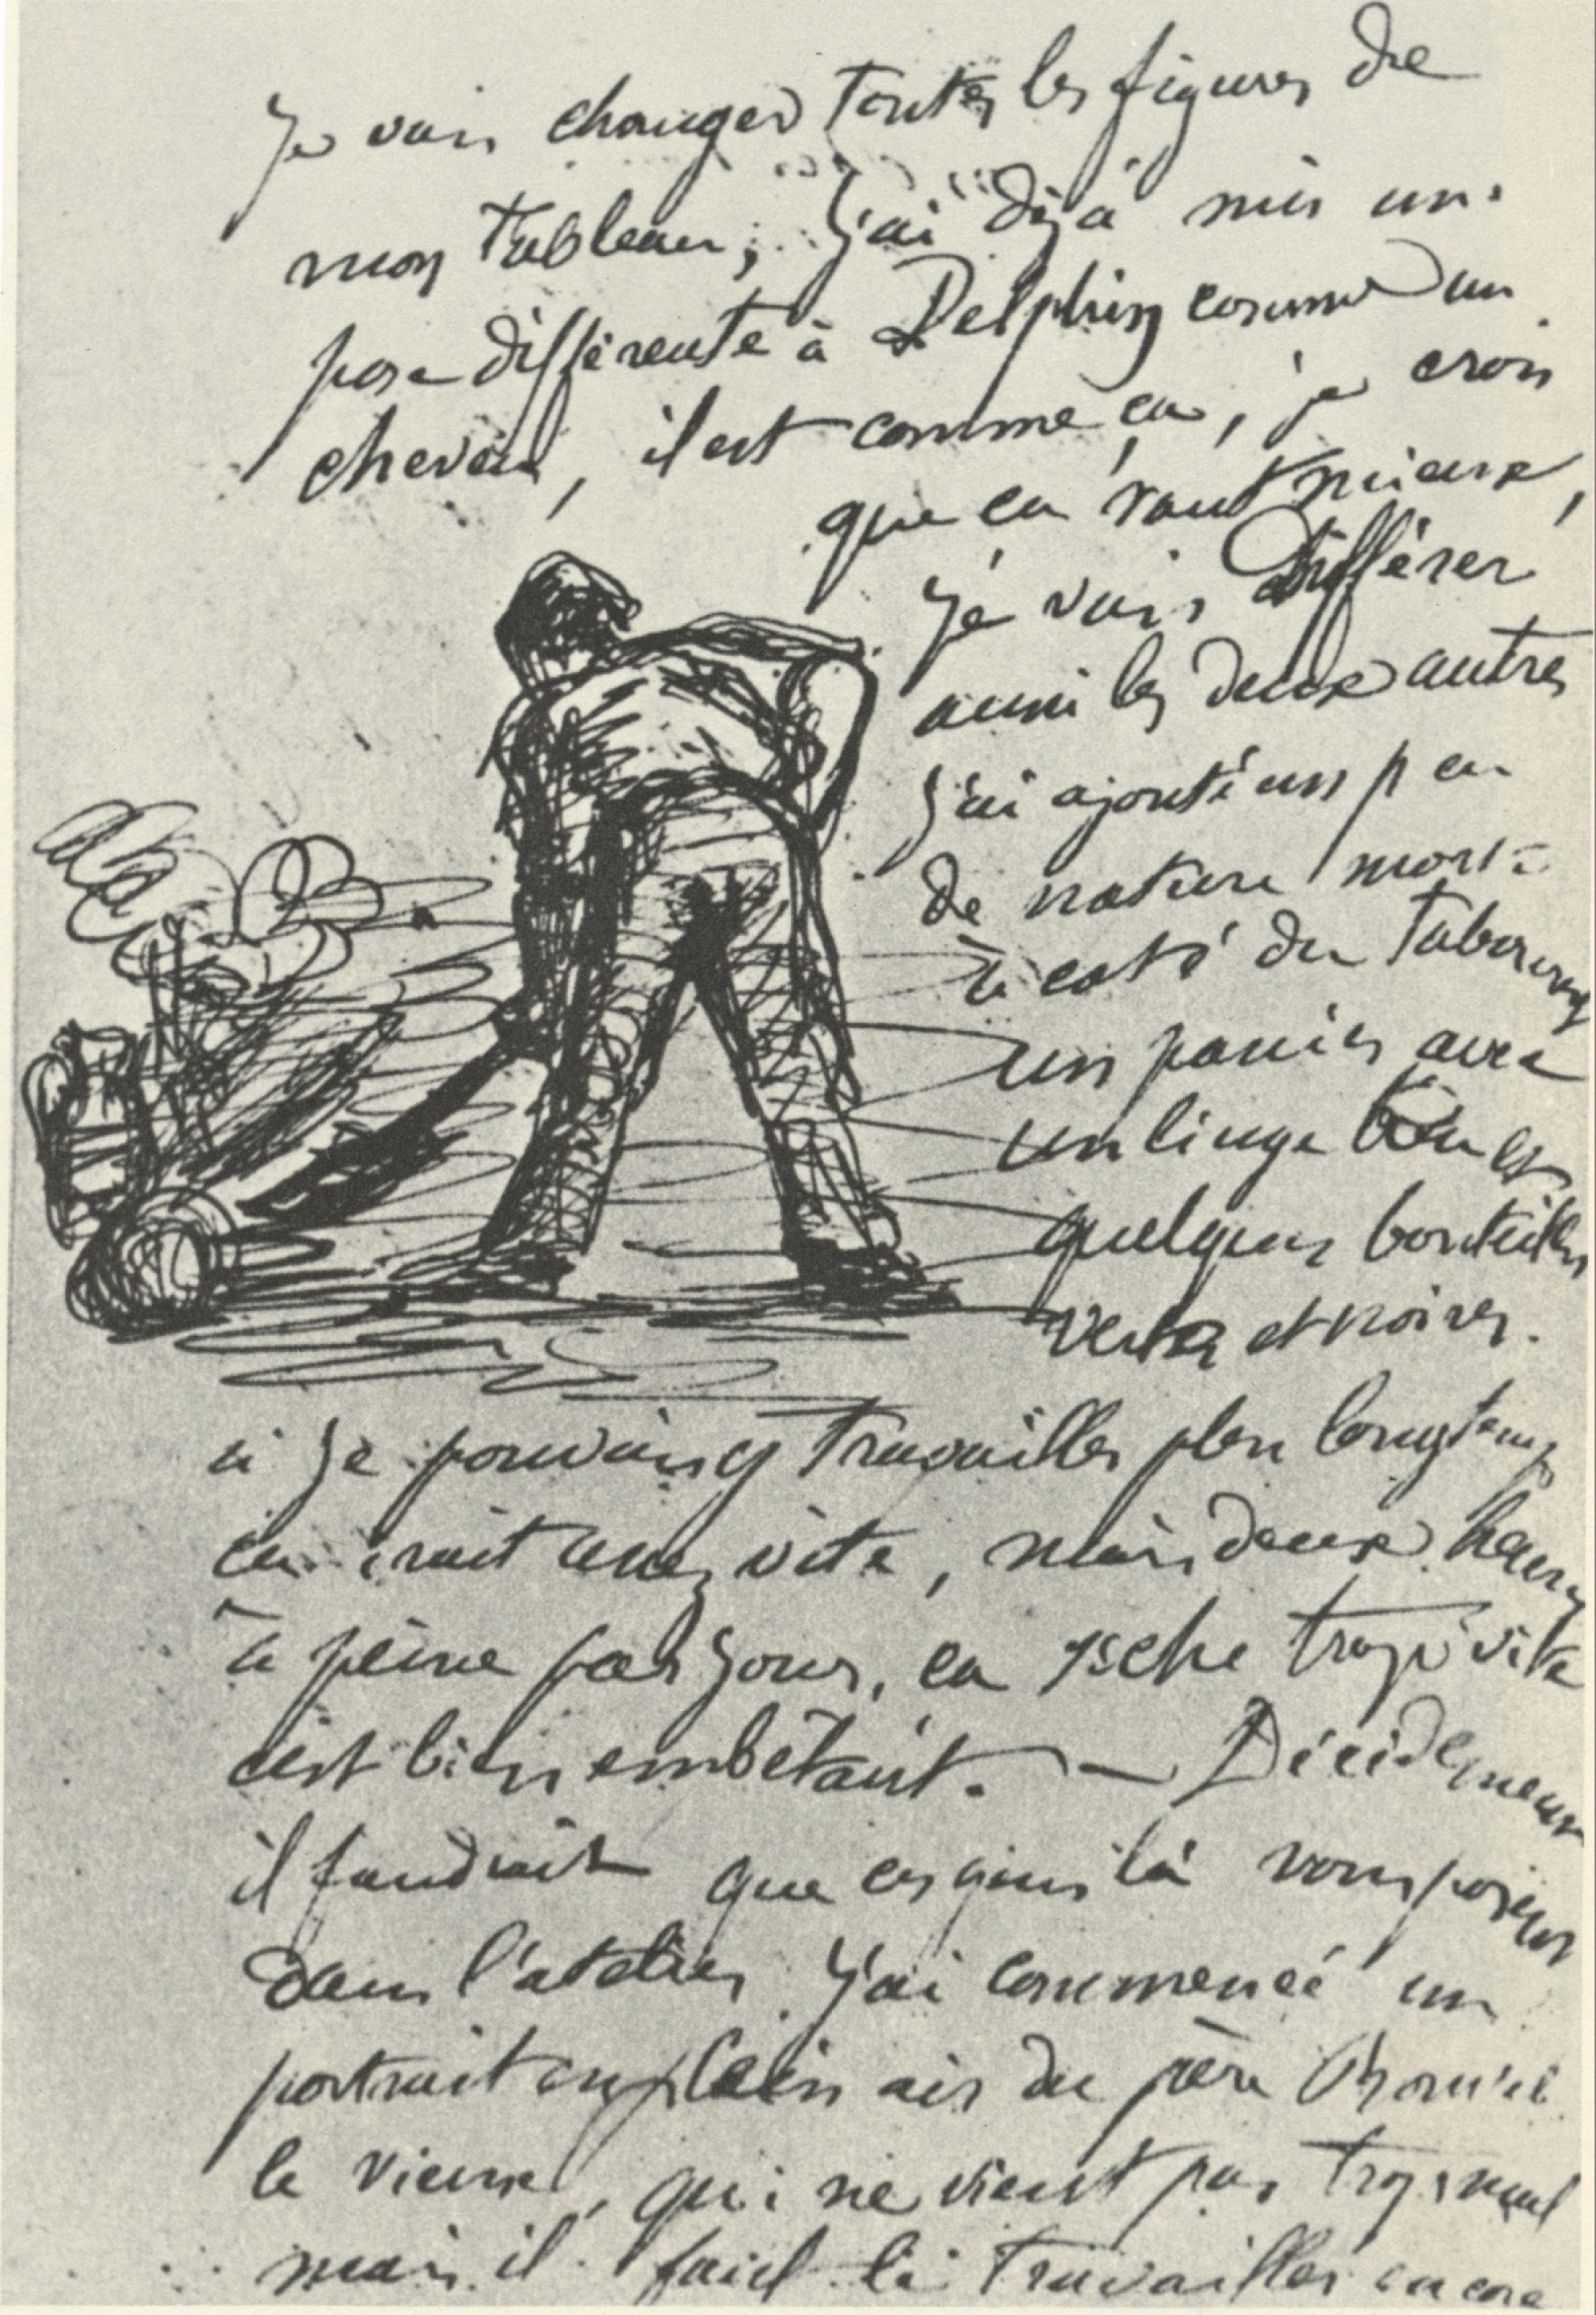 Je vais changer toutes les figures de
mon tableau, j'ai déjà mis une
pose différente à Delphin comme un
cheval, il est comme ça, je crois
que ça vaut mieux,
je vais différer
aussi les deux autres
j'ai ajouté un peu
de nature morte
à coté du
un panier avec
un linge bleu et
quelques bouteilles
vertes et noires.
si je pouvais y travailler plus longtemps
ça irait assez vite, mais deux heures
à peine par jour, ça sèche trop vite
c'est bien embêtant. — Décidement
il faudrait que ces gens là vous posent
dans l'atelier j'ai commencé un
portrait en plein air du père
le vieux, qui ne vient pas trop mal
mais il faut là travailler encore